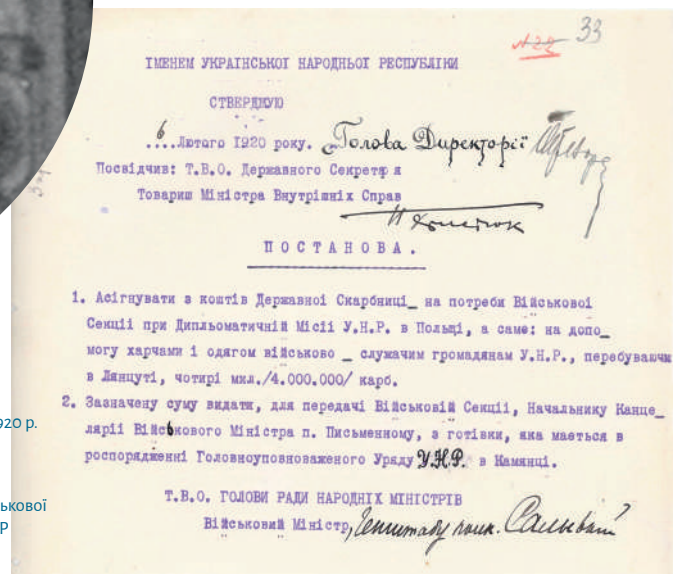 № 29 33
ІМЕНЕМ УКРАІНСЬКОІ НАРОДНЬОІ РЕСПУБЛІКИ
СТВЕРДЖУЮ
6 ....Лютого 1920 року. Голова Директорії
Посвідчив: Т.В.О. Державного Секретря
Товариш Міністра Внутрішніх Справ
ПОСТАНОВА.
1. Асігнувати з коштів Державної Скарбниці_ на потреби Військової
Секції при Дипльоматичній Місії У.Н.Р. в Польщі, а саме: на допо_
могу харчами і одягом військово _ служачим громадянам У.Н.Р., перебуваючи
в Лянцуті, чотирі мил./4.000.000/ карб.
2. Зазначену суму видати, для передачі Військовій Секції, Начальнику Канце_
лярії Військового Міністра п. Письменному, з готівки, яка мається в
роспорядженні Головноуповноваженого Уряду У.Н.Р. в Камянці.
Т.В.О. ГОЛОВИ РАДИ НАРОДНІХ МІНІСТРІВ
Військовий Міністр, Генштабу полк. Сальський
920 р.
ькової
Р